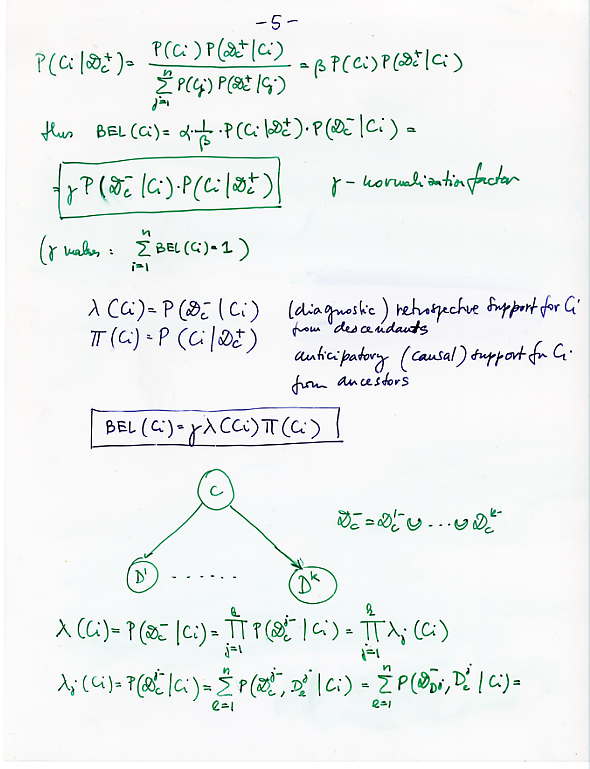 - 5 -
P(Ci|𝒟c⁺) = P(Ci) P(𝒟c⁺|Ci) / Σ_{j=1}^{n} P(Cj) P(𝒟c⁺|Cj) = β P(Ci) P(𝒟c⁺|Ci)
thus BEL(Ci) = α·1/β·P(Ci|𝒟c⁺)·P(𝒟c⁻|Ci) =
= γ P(𝒟c⁻|Ci)·P(Ci|𝒟c⁺) γ – normalization factor
(γ makes: Σ_{i=1}^{n} BEL(Ci) = 1)
λ(Ci) = P(𝒟c⁻|Ci) (diagnostic) retrospective support for Ci
from descendants
π(Ci) = P(Ci|𝒟c⁺)
anticipatory (causal) support for Ci
from ancestors
BEL(Ci) = γ λ(Ci) π(Ci)
C
𝒟c⁻ = 𝒟c¹⁻ ∪ ... ∪ 𝒟c^k⁻
D¹ ...... D^k
λ(Ci) = P(𝒟c⁻|Ci) = ∏_{j=1}^{k} P(𝒟c^j⁻|Ci) = ∏_{j=1}^{k} λj(Ci)
λj(Ci) = P(𝒟c^j⁻|Ci) = Σ_{e=1}^{n} P(𝒟c^j⁻, De^j|Ci) = Σ_{e=1}^{n} P(𝒟⁻_{D^j}, De^j|Ci) =